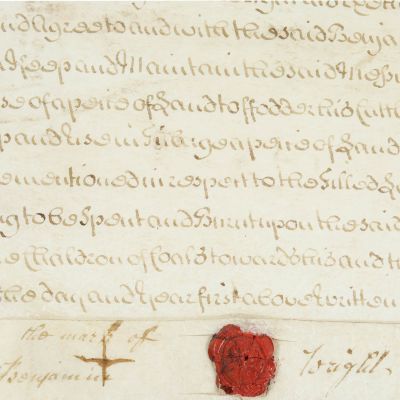 nd Agree to and with the said Benja
keep and Maintain the said Messu
se of a peice of Land to fodder his Catt
p and Use in Tillage a peice of Land
ementioned in respect to the Tilled
ng to be Spent and Burnt upon the said
ne Chaldron of Coals towards his and t
the day and Year first above written
the mark of
Benjamin Wright